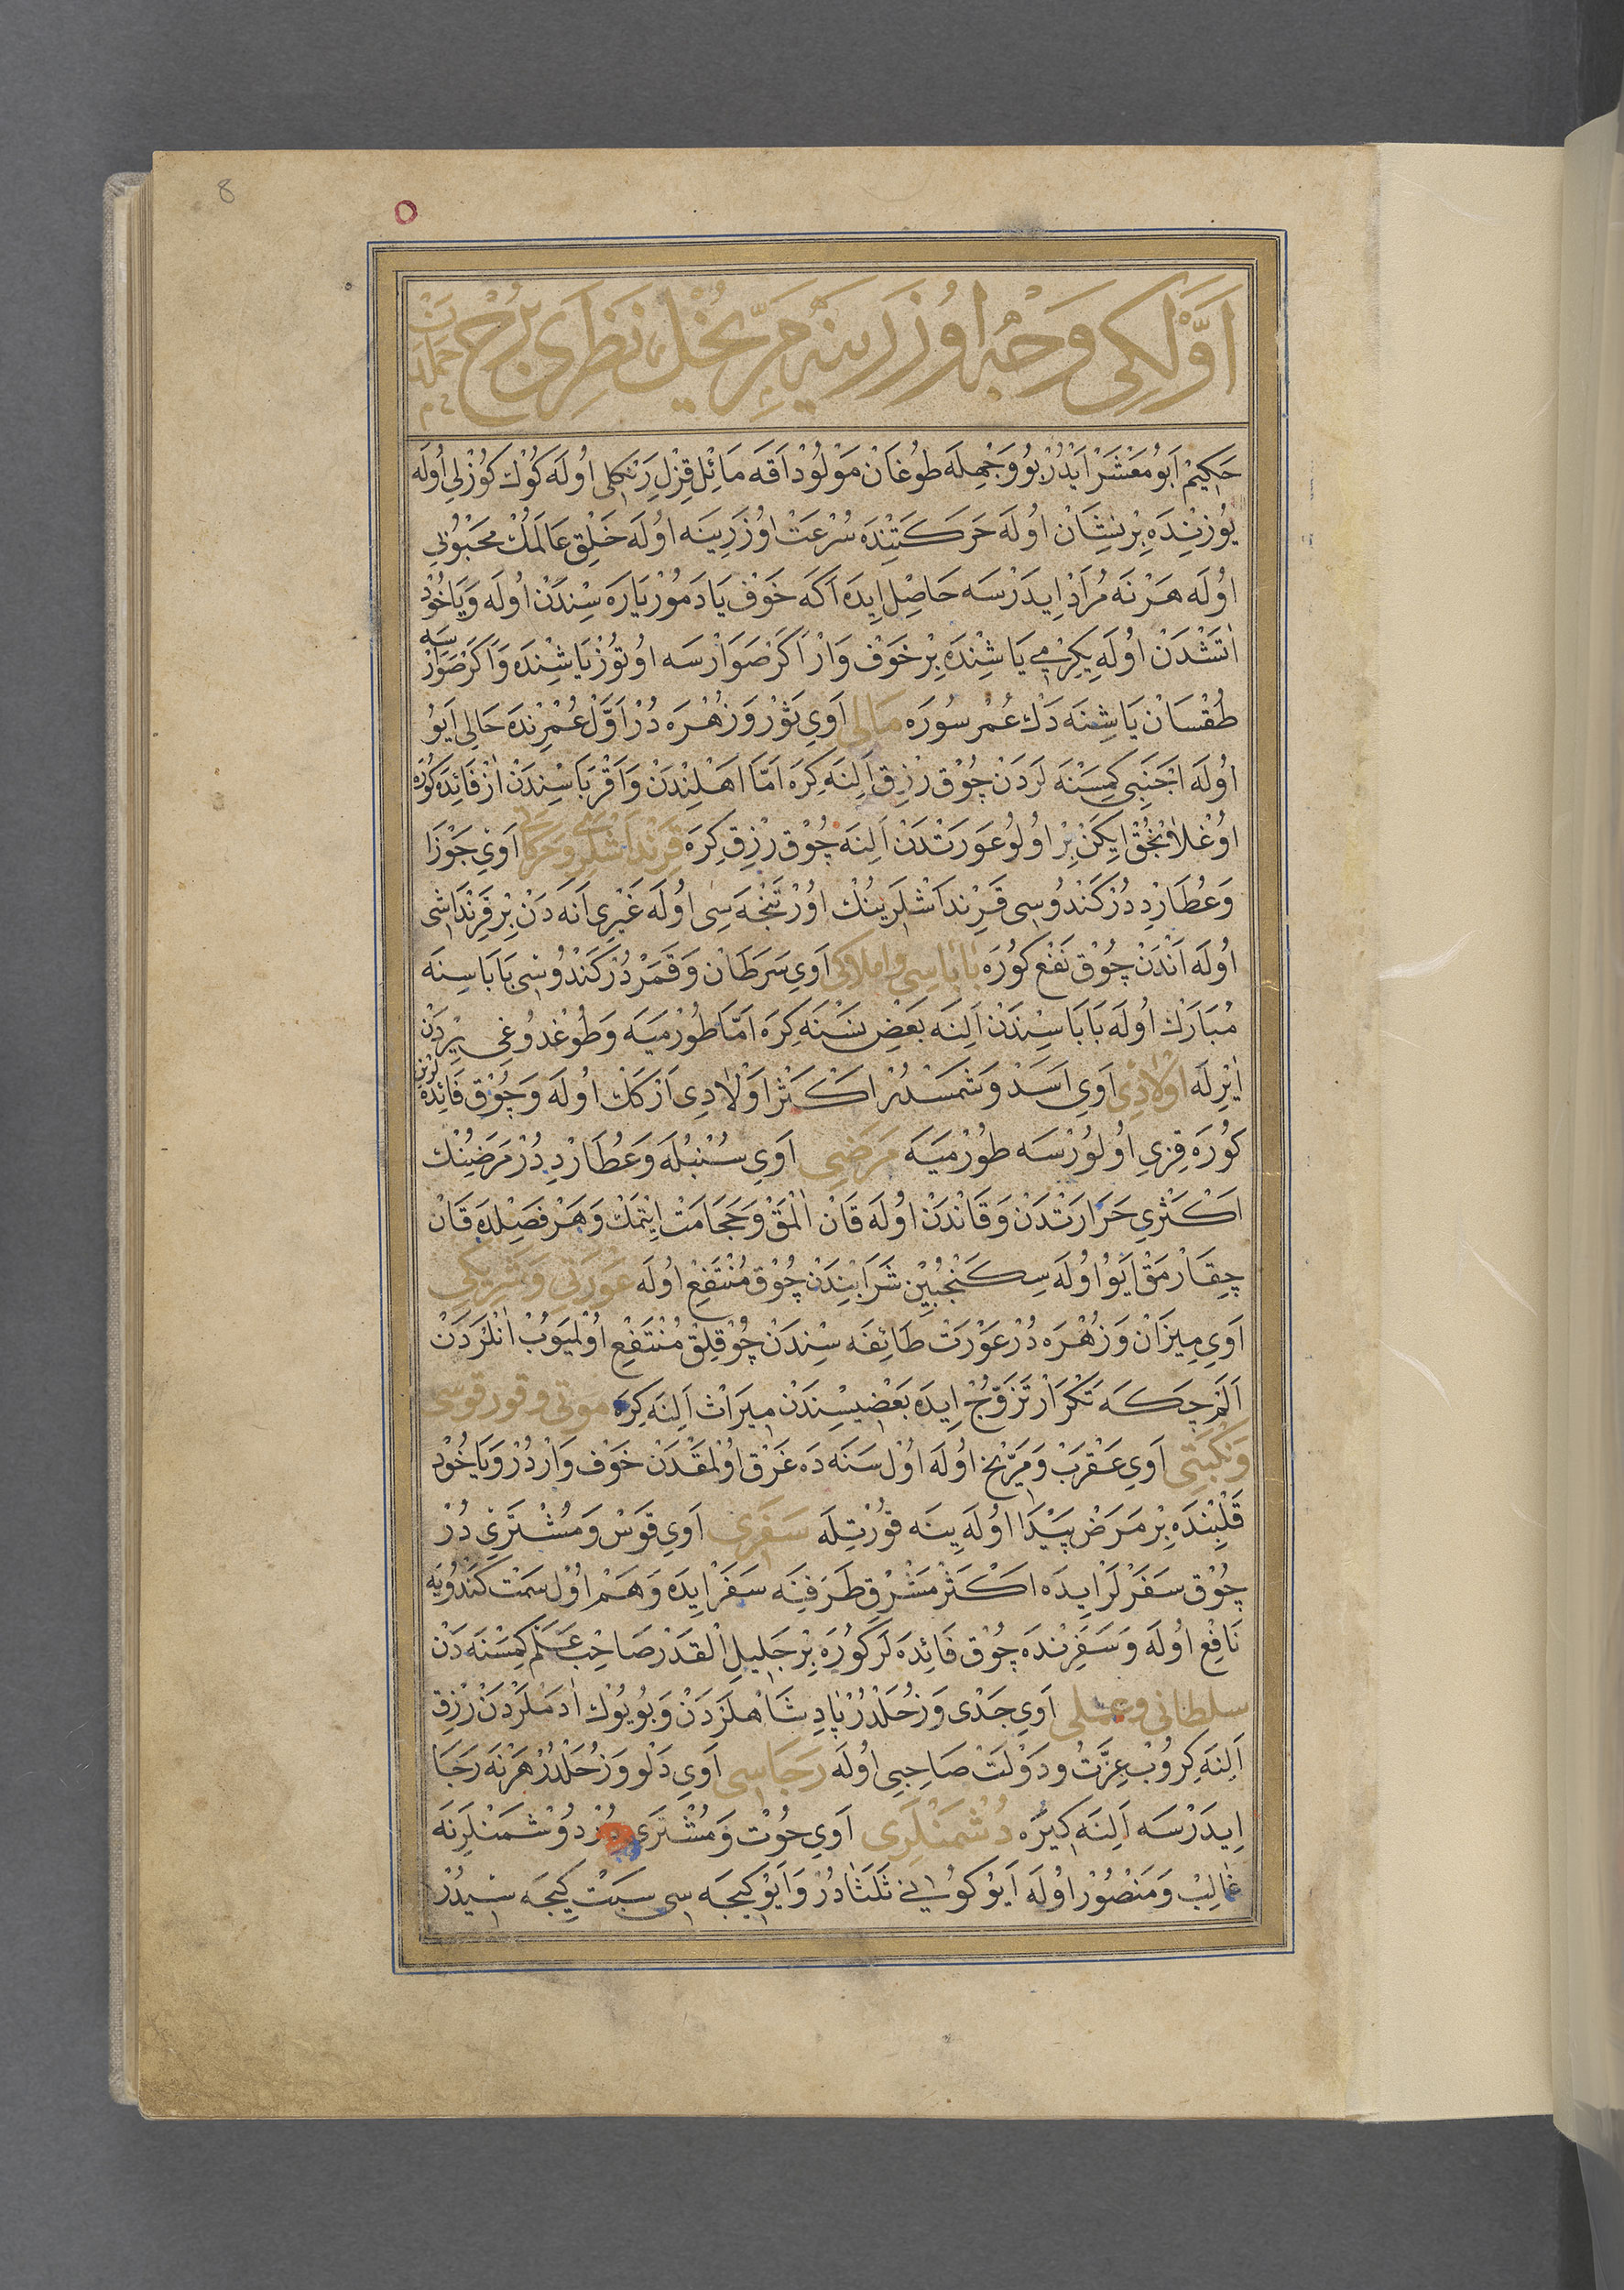 8
اَوَّلْكِي وَجْه اُوزَرِينَه مَرِّيخُكْ نَظَرِي بُرْجِ حَمَلَه
حَكِيمْ اَبُو مَعْشَرْ اَيْدُرْ بُو وَجْهِلَه طُوغَانْ مَوْلُودْ اَقَه مَائِلْ قِزِلْ رَنْكلى اُولَه كُوكْ كُوزْلِى اُولَه
يُوزِنْدَه بِرْ نِشَانْ اُولَه حَرَكَتِنْدَه سُرْعَتْ اُوزَرِينَه اُولَه خَلْقِ عَالَمُكْ مَحْبُوبِى
اُولَه هَرْ نَه مُرَادْ اِيدَرْسَه حَاصِلْ اِيدَه اَكَه خَوْفْ يَا دَمُورْ يَارَه سِنْدَنْ اُولَه وَيَا خُودْ
اٰتَشْدَنْ اُولَه يِكِرْمِى يَاشِنْدَه بِرْ خَوْفْ وَارْ اَكَرْ صَوَارْسَه اُوتُوزْ يَاشِنْدَه وَاَكَرْ صَوَارْسَه
طُقْسَانْ يَاشِنَه دَكْ عُمُرْ سُورَه مَالِى اَوِى ثَوْرْ وَزُهْرَه دُرْ اَوَّلْ عُمْرِنْدَه حَالِى اَيُو
اُولَه اَجْنَبِى كِمِسْنَه لَرْدَنْ چُوقْ رِزِقْ اَلِنَه كِرَه اَمَّا اَهْلِنْدَنْ وَاَقْرِبَاسِنْدَنْ اَزْ فَائِدَه كُورَه
اُوغْلَانْجُقْ اِيكَنْ بِرْ اُولُو عَوْرَتْدَنْ اَلِنَه چُوقْ رِزِقْ كِرَه قَرِنْدَاشْلَرِى وَحَرَكَاتِى اَوِى جَوْزَا
وَعُطَارِدْ دُرْ كَنْدُوسِى قَرِنْدَاشْلَرِينُكْ اُورْتَنْجَه سِى اُولَه غَيْرِى اَنَه دَنْ بِرْ قَرِنْدَاشِى
اُولَه اَنْدَنْ چُوقْ نَفْعْ كُورَه بَابَاسِى وَاملاكى اَوِى سَرَطَانْ وَقَمَرْ دُرْ كَنْدُوسِى بَابَاسِنَه
مُبَارَكْ اُولَه بَابَاسِنْدَنْ اَلِنَه بَعْضِ نَسْنَه كِرَه اَمَّا طُورْمَيَه وَطُوغْدُوغِى يِرْدَنْ
اَيْرِلَه اَوْلَادِى اَوِى اَسَدْ وَشَمْسْدُرْ اَكْثَرْ اَوْلَادِى اَرْكَكْ اُولَه وَچُوقْ فَائِدَه لَرِنْ
كُورَه قِزِى اُولُورْسَه طُورْمَيَه مَرَضِى اَوِى سُنْبُلَه وَعُطَارِدْ دُرْ مَرَضِنُكْ
اَكْثَرِى حَرَارَتْدَنْ وَقَانْدَنْ اُولَه قَانْ اَلْمَقْ وَحَجَامَتْ اِيتْمَكْ وَهَرْ فَصِلْدَه قَانْ
چِقَارْمَقْ اَيُو اُولَه سِكَنْجُبِينْ شَرَابِنْدَنْ چُوقْ مُنْتَفِعْ اُولَه عَوْرَتِى وَشَرِيكِى
اَوِى مِيزَانْ وَزُهْرَه دُرْ عَوْرَتْ طَائِفَه سِنْدَنْ چُوقْلِقْ مُنْتَفِعْ اُولْمَيُوبْ اَنْلَرْدَنْ
اَلَمْ چَكَه تَكْرَارْ تَزَوُّجْ اِيدَه بَعْضِيسِنْدَنْ مِيرَاثْ اَلِنَه كِرَه مَوْتِى وقورقوسى
وَنَكْبَتِى اَوِى عَقْرَبْ وَمِرِّيخْ اُولَه اُولْ سَنَه دَه غَرْقْ اُولْمَقْدَنْ خَوْفْ وَارْدُرْ وَيَا خُودْ
قَلْبِنْدَه بِرْ مَرَضْ پَيْدَا اُولَه يِينَه قُورْتِلَه سَفَرِى اَوِى قَوْسْ وَمُشْتَرِى دُرْ
چُوقْ سَفَرْلَرْ اِيدَه اَكْثَرْ مَشْرِقْ طَرَفِنَه سَفَرْ اِيدَه وَهَمْ اُولْ سَمْتْ كَنْدُويَه
نَافِعْ اُولَه وَسَفَرِنْدَه چُوقْ فَائِدَه لَرْ كُورَه بِرْ جَلِيلُ الْقَدْرْ صَاحِبْ عَلَمْ كِمِسْنَه دَنْ
سلطانى وعملى اَوِى جَدْى وَزُحَلْدُرْ پَادِشَاهْلَرْدَنْ وَبُويُوكْ اٰدَمْلَرْدَنْ رِزِقْ
اَلِنَه كِرُوبْ عِزَّتْ وَدَوْلَتْ صَاحِبِى اُولَه رَجَاسِى اَوِى دَلْو وَزُحَلْدُرْ هَرْ نَه رَجَا
اِيدَرْسَه اَلِنَه كِيرَه دُشْمَنْلَرِى اَوِى حُوتْ وَمُشْتَرِى دُرْ دُوشْمَنْلَرِنَه
غَالِبْ وَمَنْصُورْ اُولَه اَيُو كُونِى ثَلَثَا دُرْ وَاَيُو كِيجَه سِى سَبَتْ كِيجَه سِيدُرْ